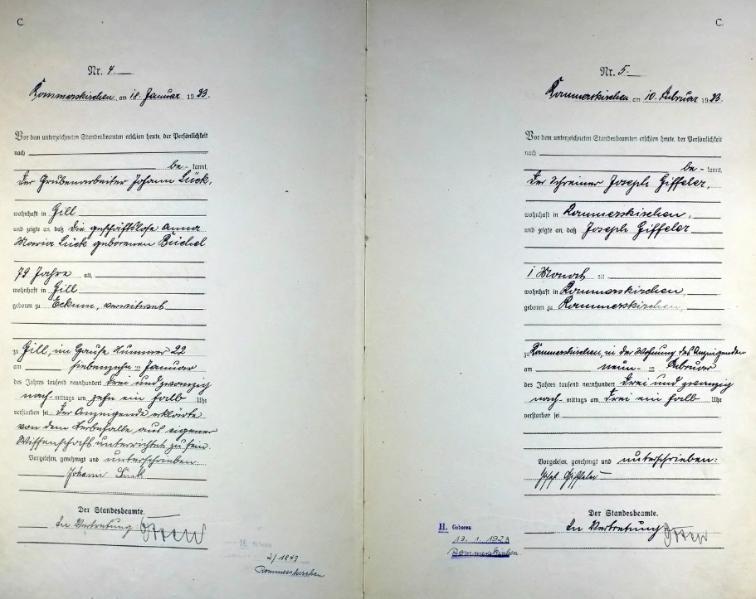 C.
Nr. 4
Rommerskirchen, am 18. Januar 1923.
Vor dem unterzeichneten Standesbeamten erschien heute, der Persönlichkeit
nach
be- kannt,
der Grubenarbeiter Johann Lück,
wohnhaft in Gill
und zeigte an, daß die geschäftslose Anna
Maria Lück geborenen Büchel
79 Jahre alt,
wohnhaft in Gill
geboren zu Eckum, verwitwet
zu Gill, im Hause Nummer 22
am siebenzehn ten Januar
des Jahres tausend neunhundert drei und zwanzig
nach- mittags um zehn ein halb Uhr
verstorben sei. Der Anzeigende erklärte
von dem Sterbefalle aus eigener
Wissenschaft unterrichtet zu sein.
Vorgelesen, genehmigt und unterschrieben.
Johann Lück
Der Standesbeamte.
In Vertretung
Rommerskirchen
C.
Nr. 5
Rommerskirchen, am 10. Februar 1923.
Vor dem unterzeichneten Standesbeamten erschien heute, der Persönlichkeit
nach
be- kannt,
der Schreiner Joseph Giffeler,
wohnhaft in Rommerskirchen,
und zeigte an, daß Joseph Giffeler
1 Monat alt
wohnhaft in Rommerskirchen,
geboren zu Rommerskirchen,
zu Rommerskirchen, in der Wohnung des Anzeigenden
am neun ten Februar
des Jahres tausend neunhundert drei und zwanzig
nach- mittags um drei ein halb Uhr
verstorben sei.
Vorgelesen, genehmigt und unterschrieben:
Josef Giffeler
Der Standesbeamte.
In Vertretung
H. Geboren
1923
Rommerskirchen